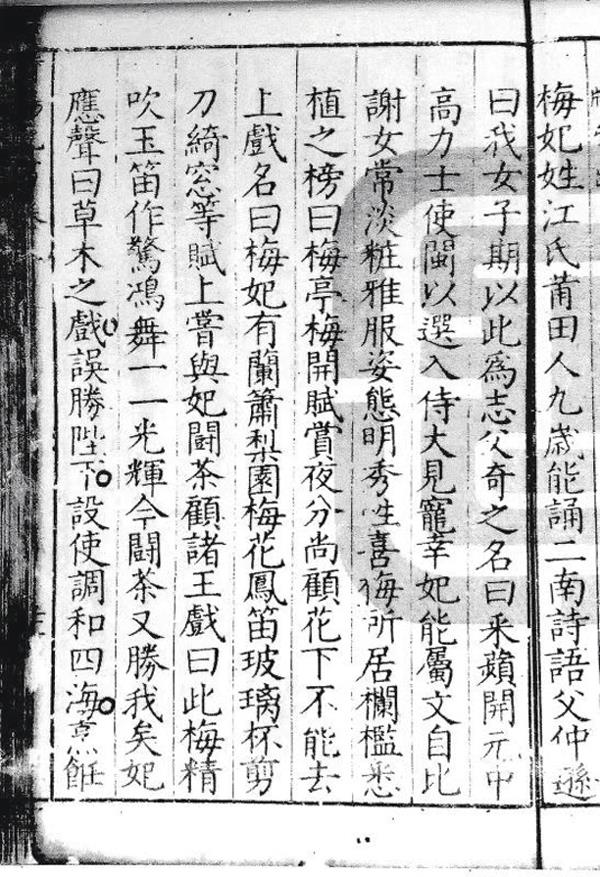 梅妃姓江氏莆田人九歳能誦二南詩語父仲遜
曰我女子期以此爲志父奇之名曰采蘋開元中
高力士使閩以選入侍大見寵幸妃能屬文自比
謝女常淡粧雅服姿態明秀性喜梅所居欄檻悉
植之榜曰梅亭梅開賦賞夜分尚顧花下不能去
上戲名曰梅妃有蘭簫梨園梅花鳳笛玻璃杯剪
刀綺窓等賦上嘗與妃鬪茶顧諸王戲曰此梅精
吹玉笛作驚鴻舞一一光輝今鬪茶又勝我矣妃
應聲曰草木之戲誤勝陛下設使調和四海烹飪